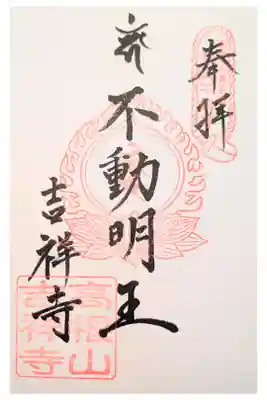 奉拝
不動明王
吉祥寺
高根山
吉祥寺